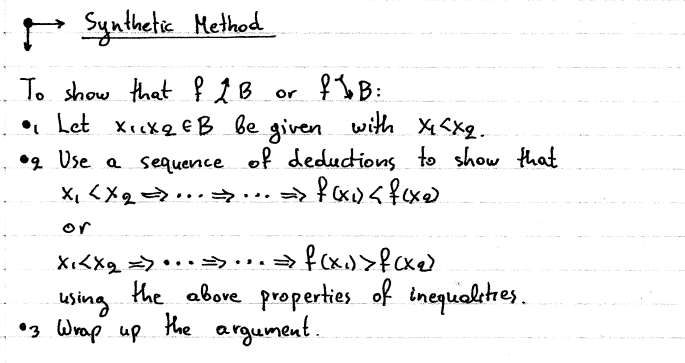 Synthetic Method
To show that f ↑ B or f ↘ B:
•1 Let x₁,x₂ ∈ B be given with x₁<x₂.
•2 Use a sequence of deductions to show that
x₁ < x₂ ⇒ ... ⇒ ... ⇒ f(x₁) < f(x₂)
or
x₁<x₂ ⇒ ... ⇒ ... ⇒ f(x₁) > f(x₂)
using the above properties of inequalities.
•3 Wrap up the argument.